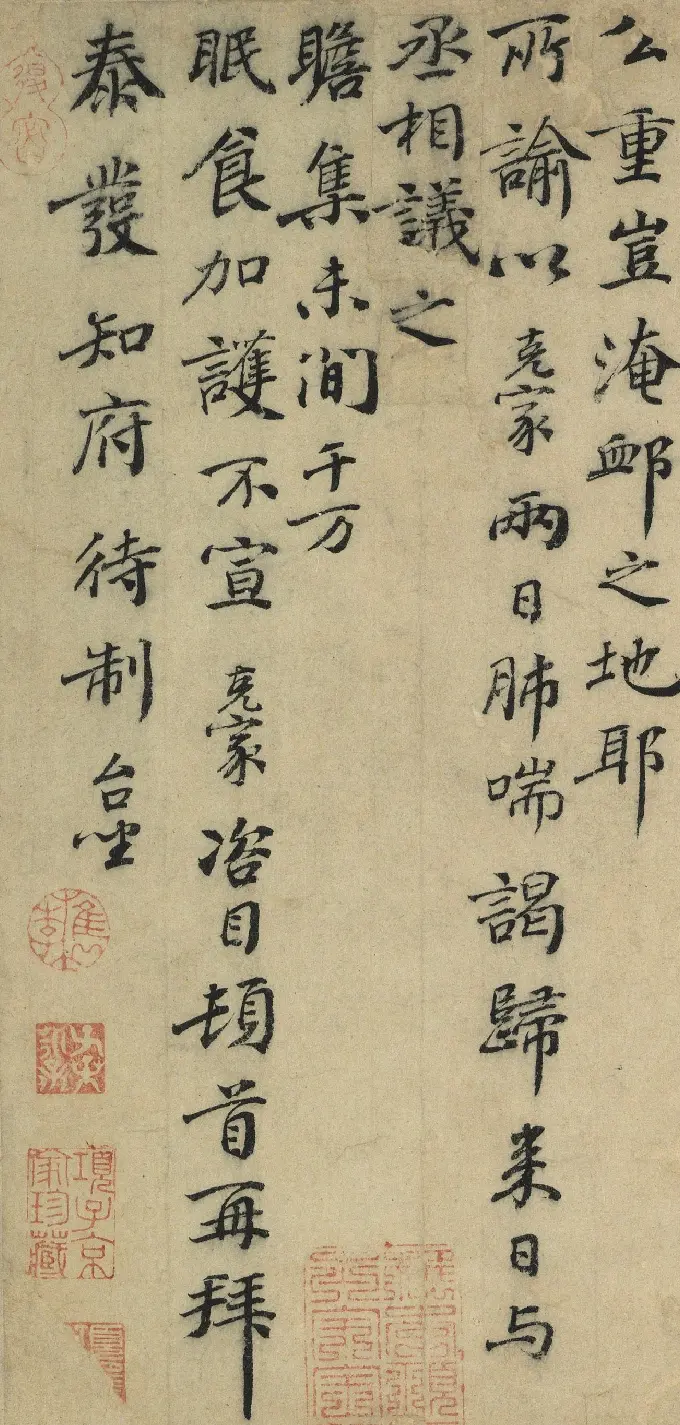 公重豈淹卹之地耶
所諭以克家兩日肺喘謁歸来日与
丞相議之
瞻集未間千万
眠食加護不宣克家咨目頓首再拜
泰發知府待制台坐
檇李
項子京家珍藏